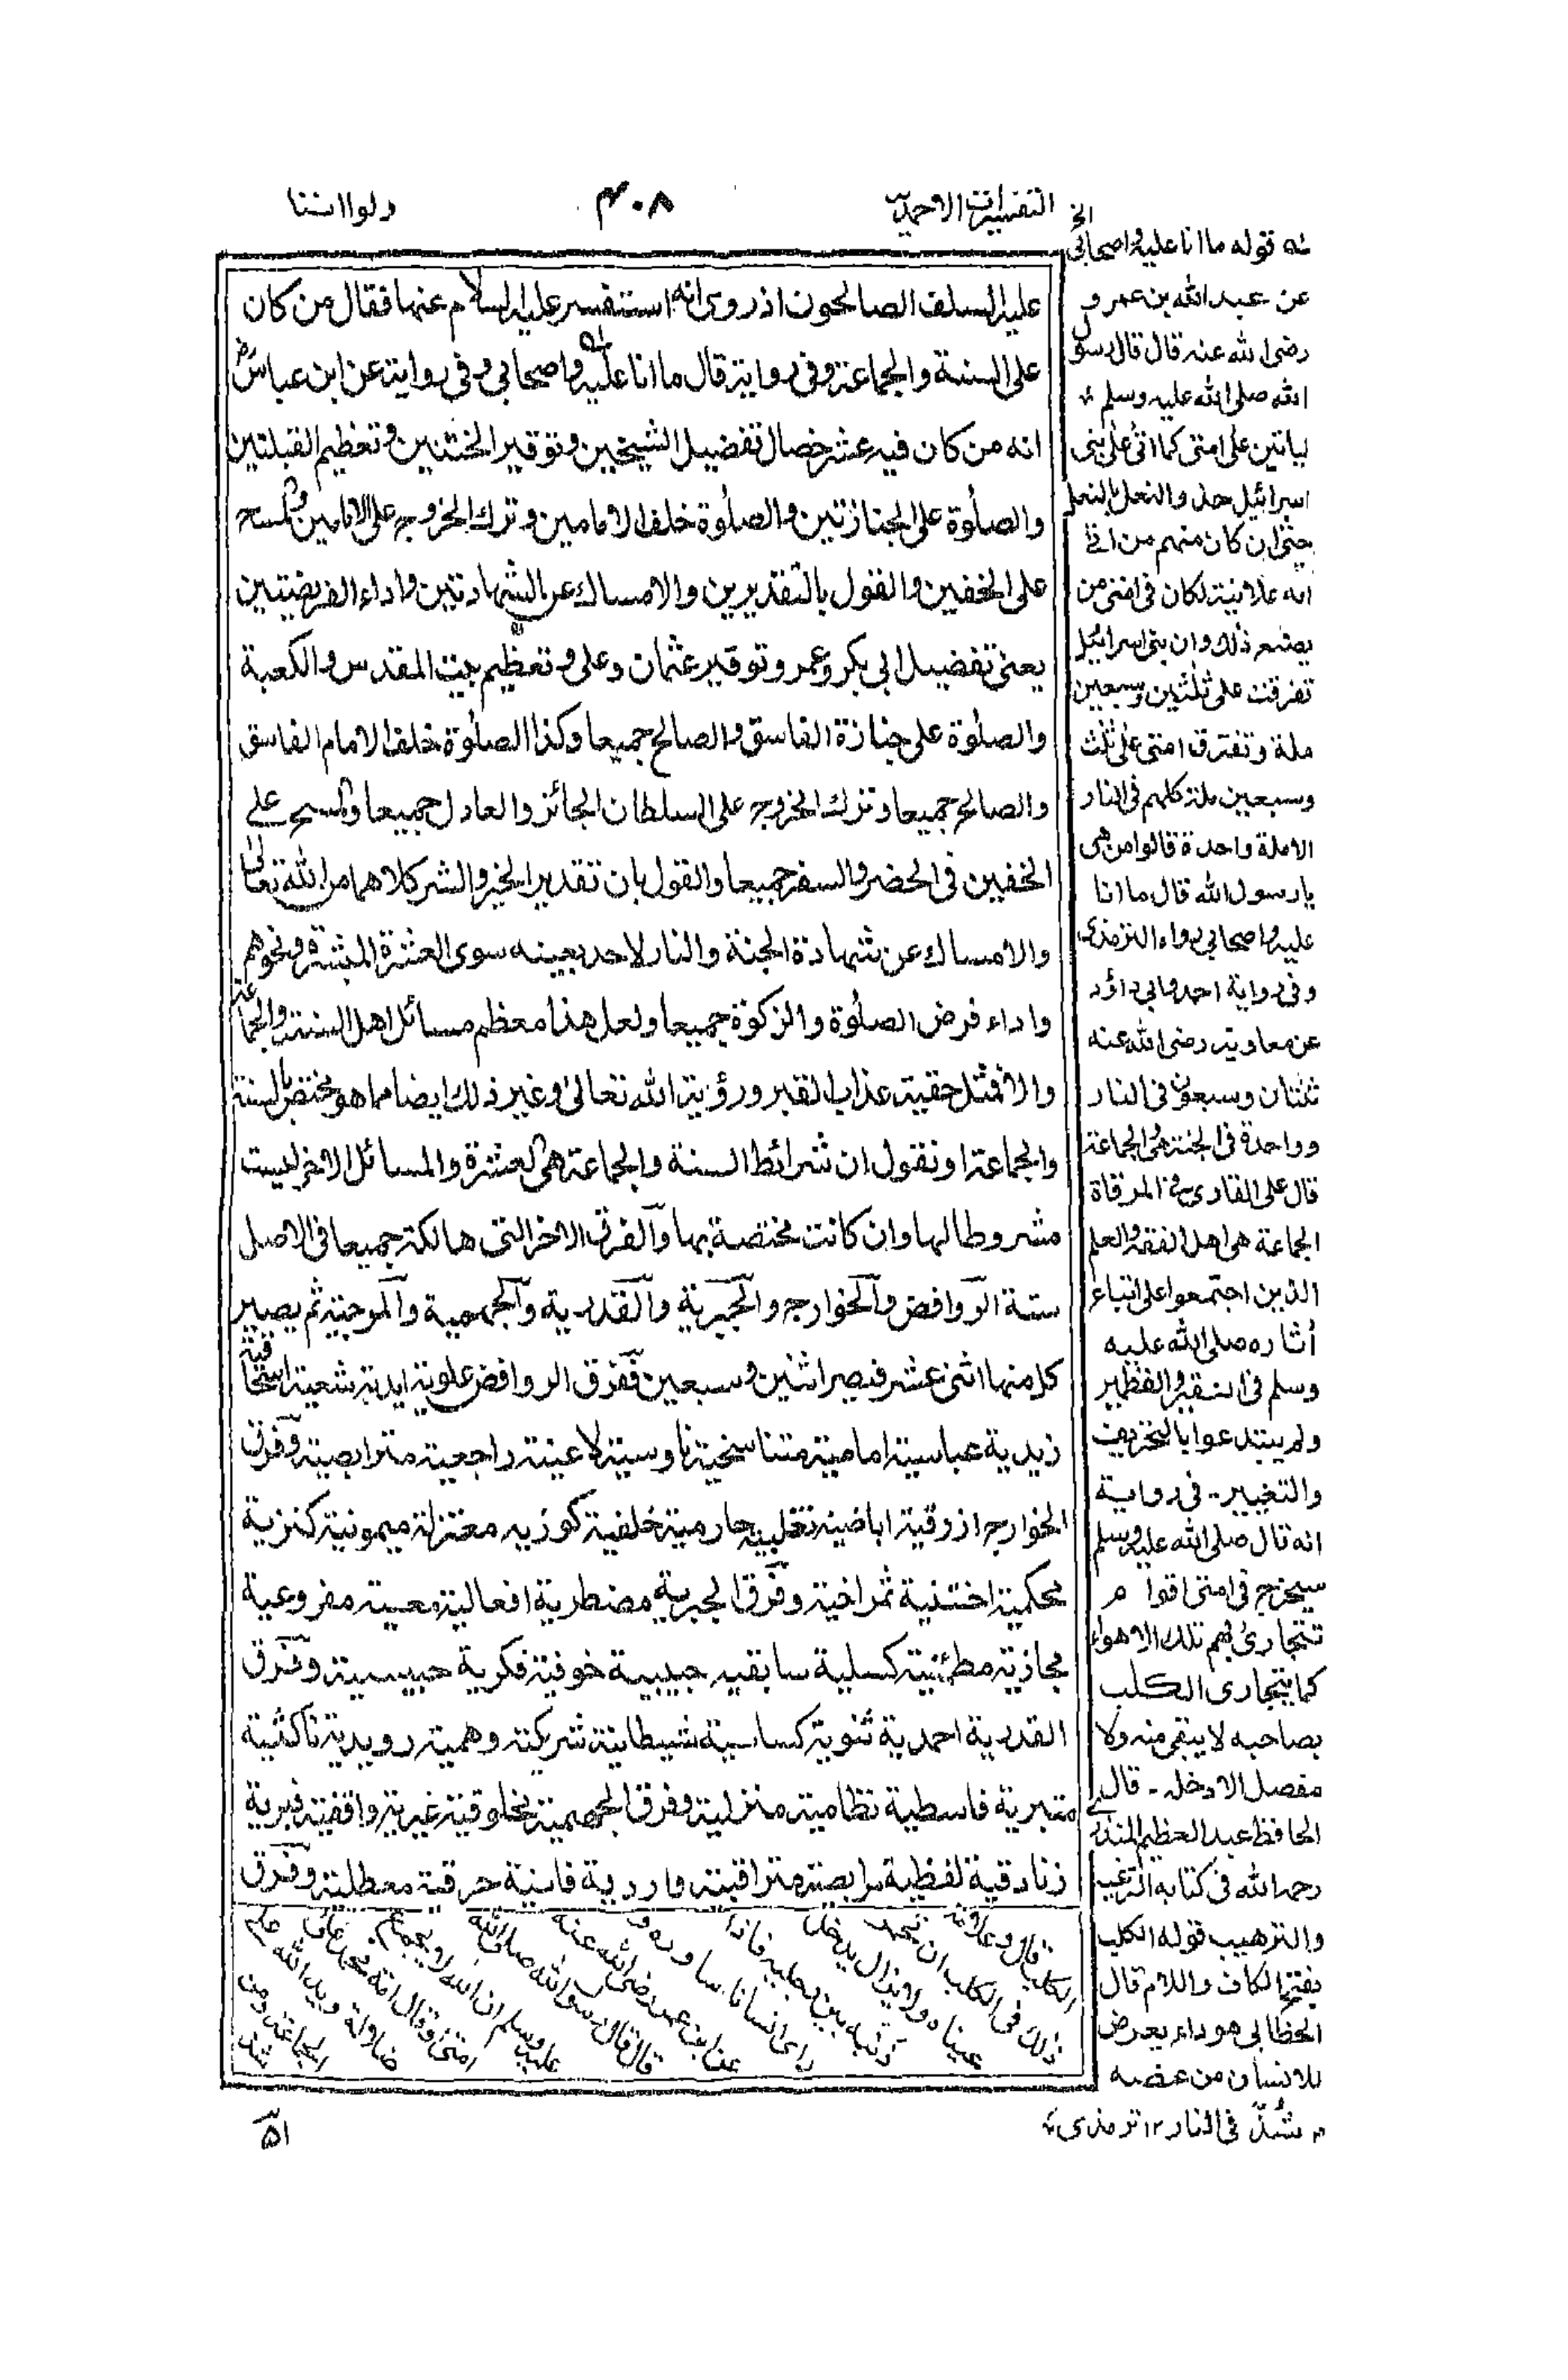 التفسيرات الاحمدية
٤٠٨
ولو اننا
عليه السلف الصالحون اذ روى انه استفسر عليه السلام عنها فقال من كان
على السنة والجماعة وفي رواية قال ما انا عليه واصحابي وفي رواية عن ابن عباس رض
انه من كان فيه عشر خصال تفضيل الشيخين وتوقير الختنين وتعظيم القبلتين
والصلوة على الجنازتين والصلوة خلف الامامين وترك الخروج على الامامين والمسح
على الخفين والقول بالتقديرين والامساك عن الشهادتين واداء الفريضتين
يعنى تفضيل ابي بكر وعمر وتوقير عثمان وعلى وتعظيم بيت المقدس والكعبة
والصلوة على جنازة الفاسق والصالح جميعا وكذا الصلوة خلف الامام الفاسق
والصالح جميعا وترك الخروج على السلطان الجائز والعادل جميعا والمسح على
الخفين فى الحضر والسفر جميعا والقول بان تقدير الخير والشر كلاهما من الله تعالى
والامساك عن شهادة الجنة والنار لاحد بعينه سوى العشرة المبشرة ونحوهم
واداء فرض الصلوة والزكوة جميعا ولعل هذا معظم مسائل اهل السنة والجماعة
والا فمثل حقية عذاب القبر ورؤية الله تعالى وغير ذلك ايضا مما هو مختص بالسنة
والجماعة او نقول ان شرائط السنة والجماعة هى العشرة والمسائل الاخر ليست
مشروطا لها وان كانت مختصة بها والفرق الاخر التى هالكة جميعا فى الاصل
ستة الروافض والخوارج والجبرية والقدرية والجهمية والمرجية ثم يصير
كل منها اثنى عشر فيصير اثنين وسبعين ففرق الروافض علوية ابدية شعية اسحاقية
زيدية عباسية امامية متناسخية ناوسية لاعنية راجعية مترابصية وفرق
الخوارج ازرقية اباضية ثعلبية حارمية خلفية كوزيه معتزلة ميمونية كنزية
محكمية اخنسية ثمراخية وفرق الجبرية مضطرية افعالية معية مفروعية
مجازية مطمئنية كسلية سابقيه حبيبية خوفية فكرية حسيبية وفرق
القدرية احمدية ثنوية كساسية شيطانية شريكة وهمية رويدية ناكثية
متبرية فاسطية نظامية منزلية وفرق الجهمية مخلوقية غيرية واقفية قبرية
زنادقية لفظية مرابصية متراقبية واردية فانية حرقية معطلية وفرق
له قوله ما انا عليه واصحابي الخ
عن عبد الله بن عمرو
رضى الله عنه قال قال رسول
الله صلى الله عليه وسلم
لياتين على امتى كما اتى على بنى
اسرائيل حذو النعل بالنعل
حتى ان كان منهم من اتى
امه علانية لكان فى امتى من
يصنع ذلك وان بنى اسرائيل
تفرقت على ثلثين وسبعين
ملة وتفترق امتى على ثلث
وسبعين ملة كلهم فى النار
الا ملة واحدة قالوا من هى
يا رسول الله قال ما انا
عليه واصحابي رواه الترمذى
وفى رواية احمد وابي داؤد
عن معاوية رضى الله عنه
ثنتان وسبعون فى النار
وواحدة فى الجنة وهى الجماعة
قال على القارى فى المرقاة
الجماعة هى اهل الفقه والعلم
الذين اجتمعوا على اتباع
أثاره صلى الله عليه
وسلم فى النقير والقطمير
ولم يبتدعوا بالتحريف
والتغيير - فى رواية
انه قال صلى الله عليه وسلم
سيخرج فى امتى اقوام
تتجارى بهم تلك الاهواء
كما يتجارى الكلب
بصاحبه لا يبقى منه ولا
مفصل الا دخله - قال
الحافظ عبد العظيم المنذرى
رحمه الله فى كتابه الترغيب
والترهيب قوله الكلب
بفتح الكاف واللام قال
الخطابى هو داء يعرض
للانسان من عضه
الكلب قال وعلامة
ذلك فى الكلب ان تحمر
عيناه ولا يزال يدخل
ذنبه بين رجليه فاذا
راى انسانا ساوره و
عن ابن عمر رضى الله عنه
قال قال رسول الله صلى الله
عليه وسلم ان الله لا يجمع
امتى او قال امة محمد على
ضلالة ويد الله على
الجماعة ومن
شذ
شذ فى النار ١٢ ترمذى
٥١